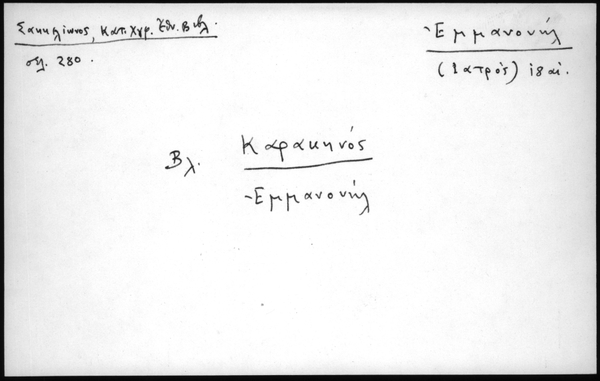 Σακκελίωνος, Κατ. Χγρ. Ἐθν. Βιβλ.
σελ. 280.
Ἐμμανουήλ
(Ἰατρός) ιβ αἰ.
Βλ. Καρακηνός
Ἐμμανουήλ